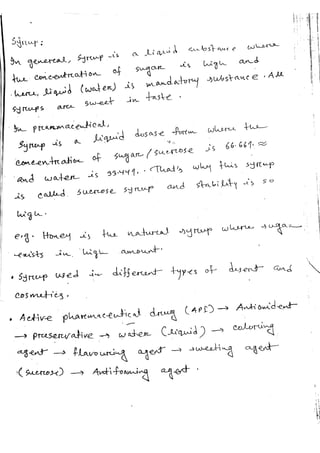 Syrup:
In general, Syrup is a liquid substance where
the concentration of sugar is high and
here, liquid (water) is mandatory substance. All
syrups are sweet in taste.
In pharmaceutical,
Syrup is a liquid dosase form where the
concentration of sugar/sucrose is 66.667.
and water is 33.447. That's why this syrup
is called sucrose syrup and stability is so
high.
e.g. Honey is the natural syrup where sugar
exists in high amount.
• Syrup used in different types of desert and
cosmetics.
• Active pharmaceutical drug (API) → Antioxident
→ preservative → water (liquid) → coloring
agent → flavouring agent → sweeting agent
(sucrose) → Antifoming agent.